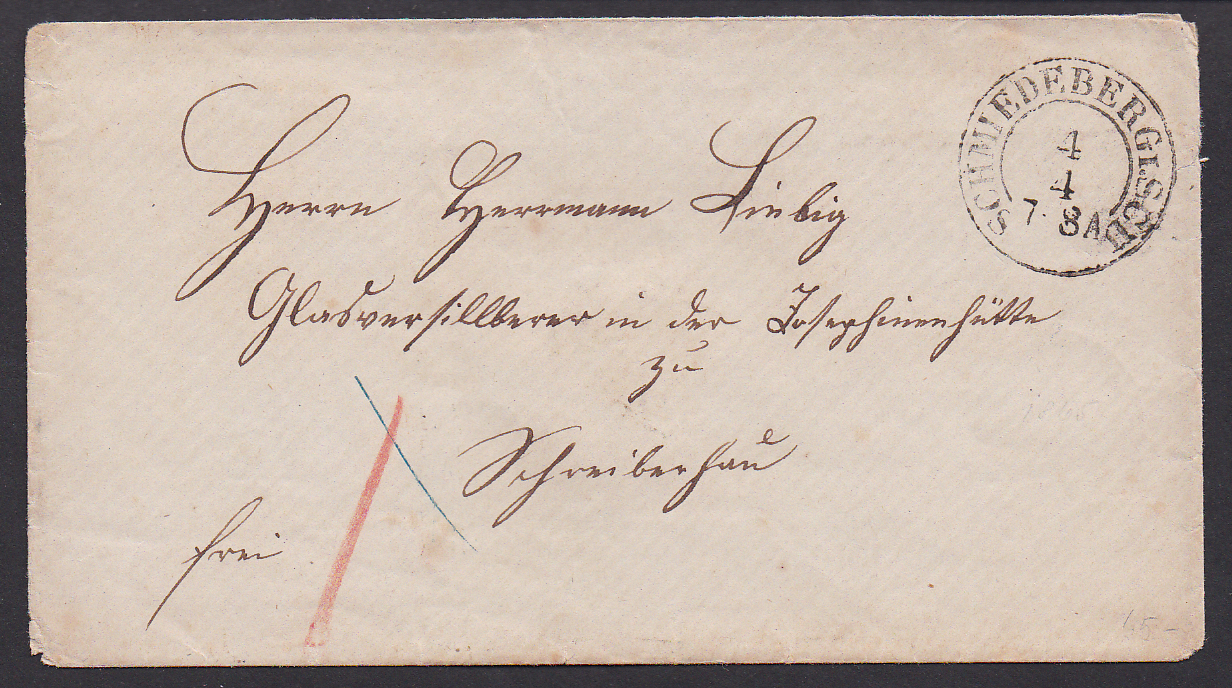 SCHMIEDEBERG I. SCH
4
4
7. 8 A
Herrn Herrmann Liebig
Glasversillberer in der Josephinenhütte
zu
Schreiberhau
frei